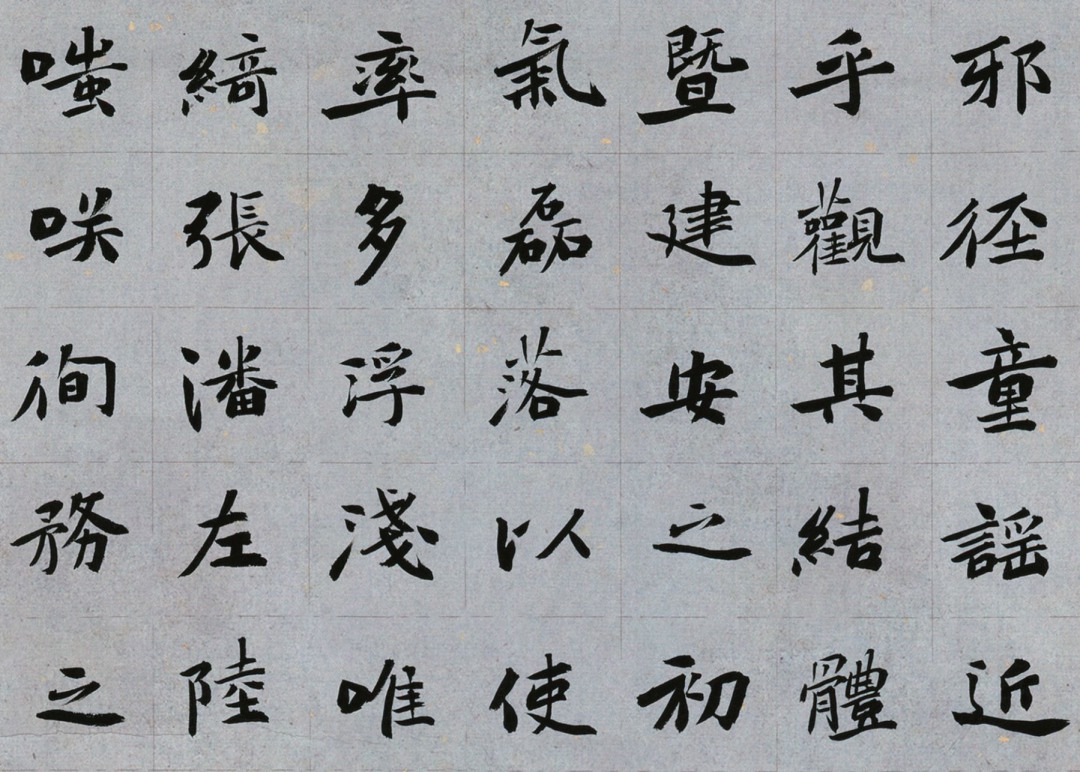 邪徑童謡近
乎觀其結體
暨建安之初
氣磊落以使
率多浮淺唯
綺張潘左陸
嗤咲徇務之